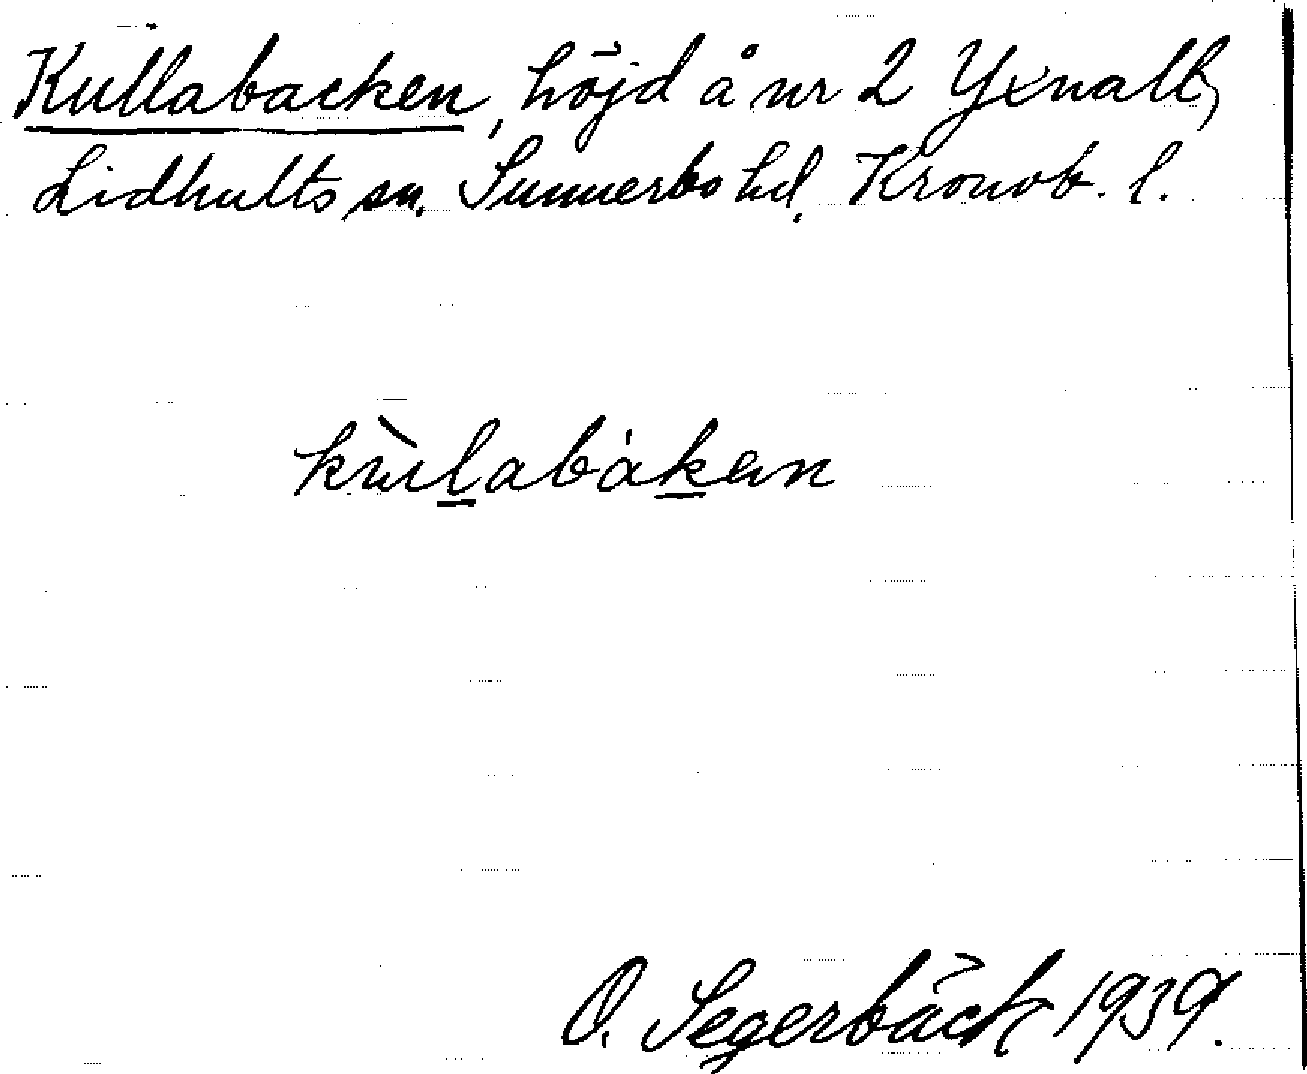 Kullabacken, höjd å nr 2 Yxnalt,
Lidhults sn. Sunnerbo hd. Kronob. l.
kùlabáken
O. Segerbäck 1939.